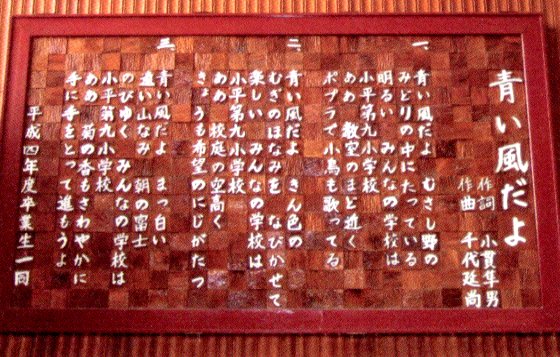 青い風だよ
作詞 小貫隼男
作曲 千代延尚
一、
青い風だよ むさし野の
みどりの中にたっている
明るい みんなの学校は
小平第九小学校
ああ 教室のまど近く
ポプラで小鳥も歌ってる
二、
青い風だよ きん色の
むぎのほなみを なびかせて
楽しい みんなの学校は
小平第九小学校
ああ 校庭の空高く
きょうも希望のにじがたつ
三、
青い風だよ まっ白い
遠い山なみ 朝の富士
のびゆく みんなの学校は
小平第九小学校
ああ 菊の香もさわやかに
手に手をとって進もうよ
平成四年度卒業生一同